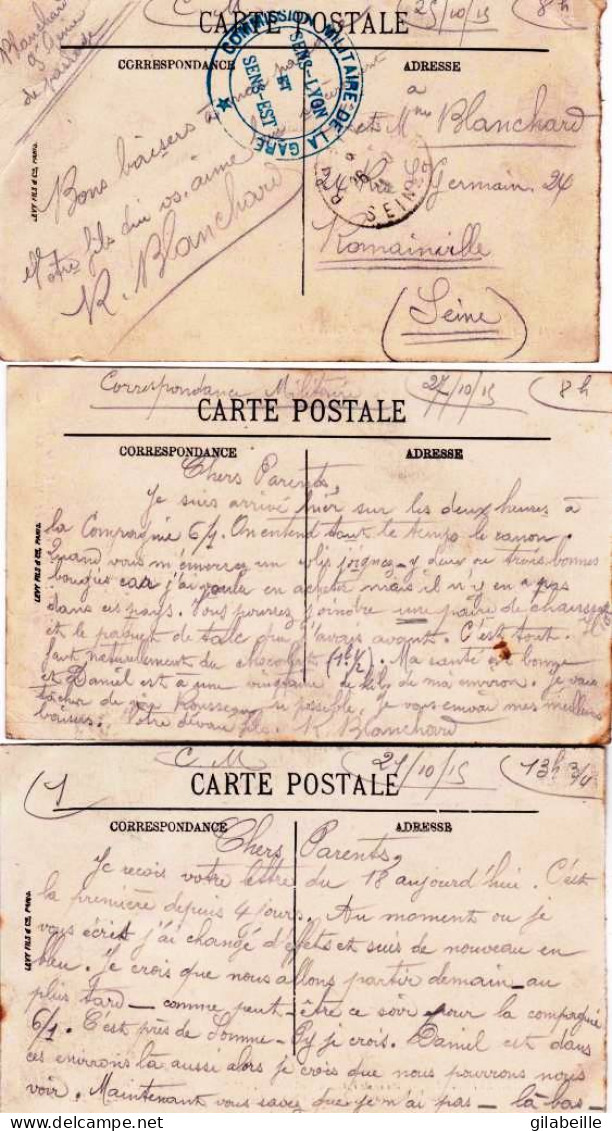 Blanchard
C. M.
25/10/15
8h
CARTE POSTALE
CORRESPONDANCE
ADRESSE
COMMISSION MILITAIRE DE LA GARE
SENS-LYON
ET
SENS-EST
SEINE
LEVY FILS & Cie, PARIS.
Bons baisers
fils qui vs. aime
R. Blanchard
à
et Mme Blanchard
24 Rue St Germain 24
Romainville
(Seine)
Correspondance Militaire
27/10/15
8h
CARTE POSTALE
CORRESPONDANCE
ADRESSE
LEVY FILS & Cie, PARIS.
Chers Parents,
Je suis arrivé hier sur les deux heures à
la Compagnie 6/1. On entend tout le temps le canon.
Quand vous m'enverrez un colis joignez-y deux ou trois bonnes
bougies car j'ai voulu en acheter mais il n'y en a pas
dans ces pays. Vous pourrez joindre une paire de
et le paquet de talc que j'avais avant. C'est tout. Il
faut naturellement du chocolat. Ma santé est bonne
et Daniel est à une vingtaine de kil. de moi environ. Je vais
tâcher de si possible, je vous envoie mes meilleurs
baisers. Votre dévoué fils. R. Blanchard
C. M
21/10/15
13h 3/4
1
CARTE POSTALE
CORRESPONDANCE
ADRESSE
LEVY FILS & Cie, PARIS.
Chers Parents,
Je reçois votre lettre du 18 aujourd'hui. C'est
la première depuis 4 jours. Au moment ou je
vous écris j'ai changé d'effets et suis de nouveau en
bleu. Je crois que nous allons partir demain au
plus tard – comme peut-être ce soir pour la compagnie
6/1. C'est près de Somme-Py je crois. Daniel est dans
ces environs là aussi alors je crois que nous pourrons nous
voir. Maintenant vous savez que je n'ai pas – là-bas –
delcampe.net
gilabeille